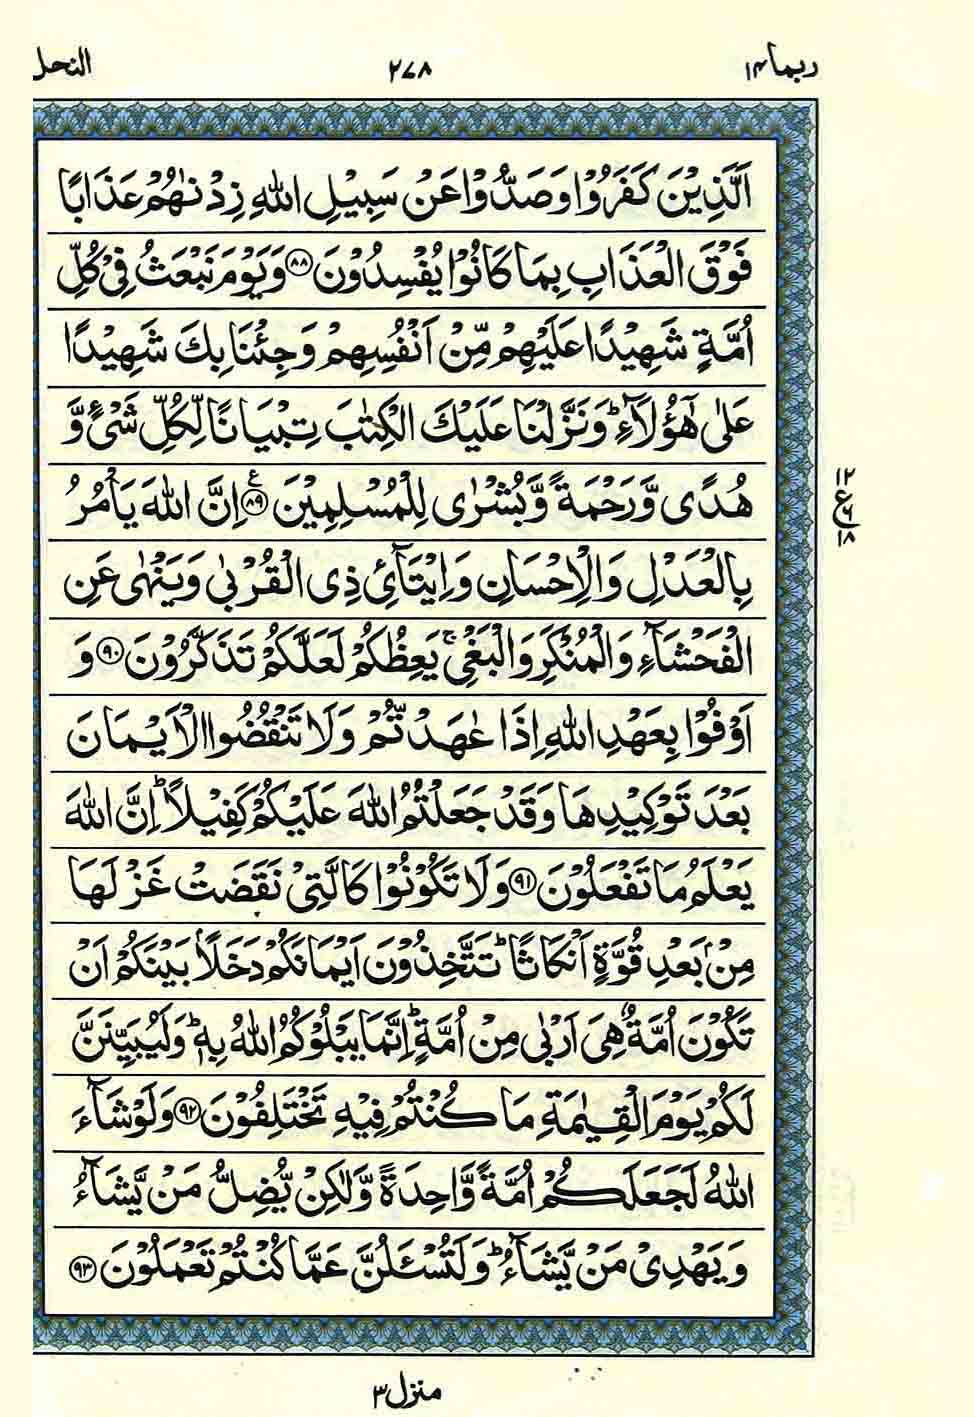 ربما ١٤ ٢٧٨ النحل
اَلَّذِيْنَ كَفَرُوْا وَصَدُّوْا عَنْ سَبِيْلِ اللّٰهِ زِدْنٰهُمْ عَذَابًا
فَوْقَ الْعَذَابِ بِمَا كَانُوْا يُفْسِدُوْنَ ﴿٨٨﴾ وَيَوْمَ نَبْعَثُ فِيْ كُلِّ
اُمَّةٍ شَهِيْدًا عَلَيْهِمْ مِّنْ اَنْفُسِهِمْ وَجِئْنَا بِكَ شَهِيْدًا
عَلٰى هٰٓؤُلَآءِ ؕ وَنَزَّلْنَا عَلَيْكَ الْكِتٰبَ تِبْيَانًا لِّكُلِّ شَيْءٍ وَّ
هُدًى وَّرَحْمَةً وَّبُشْرٰى لِلْمُسْلِمِيْنَ ﴿٨٩﴾ ع اِنَّ اللّٰهَ يَاْمُرُ
١٢ ع ٦ ١٨
بِالْعَدْلِ وَالْاِحْسَانِ وَاِيْتَآئِ ذِي الْقُرْبٰى وَيَنْهٰى عَنِ
الْفَحْشَآءِ وَالْمُنْكَرِ وَالْبَغْيِ ۚ يَعِظُكُمْ لَعَلَّكُمْ تَذَكَّرُوْنَ ﴿٩٠﴾ وَ
اَوْفُوْا بِعَهْدِ اللّٰهِ اِذَا عٰهَدْتُّمْ وَلَا تَنْقُضُوا الْاَيْمَانَ
بَعْدَ تَوْكِيْدِهَا وَقَدْ جَعَلْتُمُ اللّٰهَ عَلَيْكُمْ كَفِيْلًا ؕ اِنَّ اللّٰهَ
يَعْلَمُ مَا تَفْعَلُوْنَ ﴿٩١﴾ وَلَا تَكُوْنُوْا كَالَّتِيْ نَقَضَتْ غَزْلَهَا
مِنْۢ بَعْدِ قُوَّةٍ اَنْكَاثًا ؕ تَتَّخِذُوْنَ اَيْمَانَكُمْ دَخَلًاۢ بَيْنَكُمْ اَنْ
تَكُوْنَ اُمَّةٌ هِيَ اَرْبٰى مِنْ اُمَّةٍ ؕ اِنَّمَا يَبْلُوْكُمُ اللّٰهُ بِهٖ ؕ وَلَيُبَيِّنَنَّ
لَكُمْ يَوْمَ الْقِيٰمَةِ مَا كُنْتُمْ فِيْهِ تَخْتَلِفُوْنَ ﴿٩٢﴾ وَلَوْ شَآءَ
اللّٰهُ لَجَعَلَكُمْ اُمَّةً وَّاحِدَةً وَّلٰكِنْ يُّضِلُّ مَنْ يَّشَآءُ
وَيَهْدِيْ مَنْ يَّشَآءُ ؕ وَلَتُسْـَٔلُنَّ عَمَّا كُنْتُمْ تَعْمَلُوْنَ ﴿٩٣﴾
منزل ٣